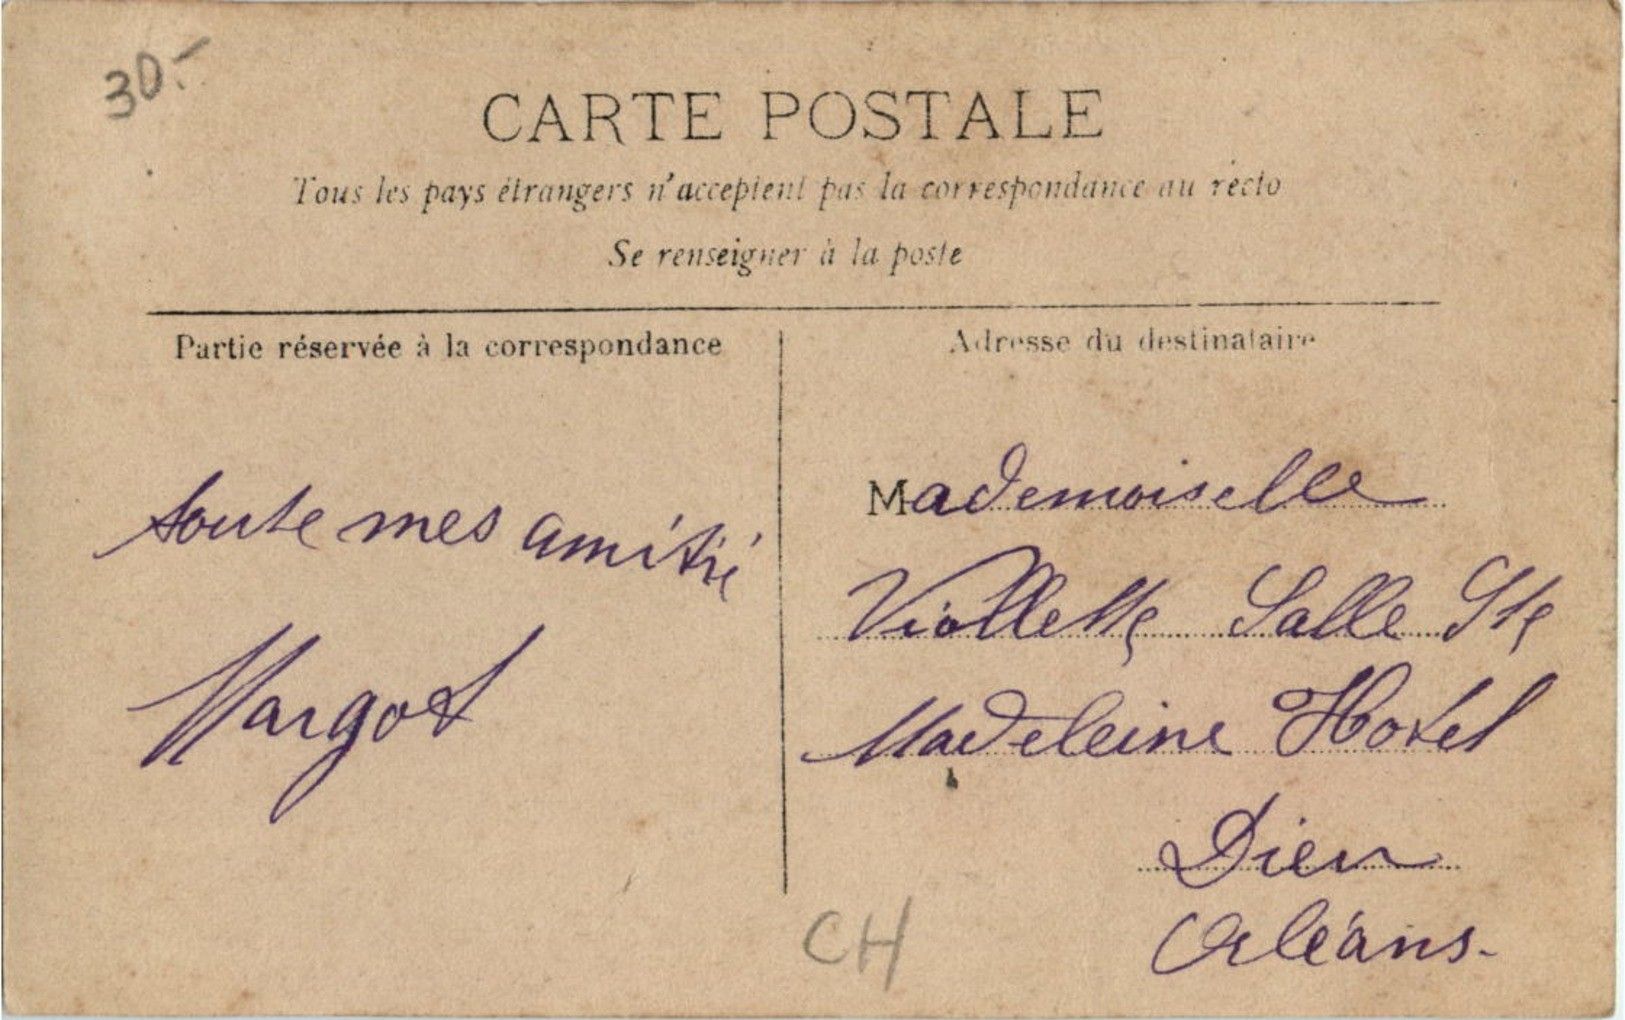 30.-
CARTE POSTALE
Tous les pays étrangers n'acceptent pas la correspondance au recto
Se renseigner à la poste
Partie réservée à la correspondance
toute mes amitié
Margot
Adresse du destinataire
Mademoiselle
Viollette Salle Ste
Madeleine Hotel
Dieu
Orléans.
CH